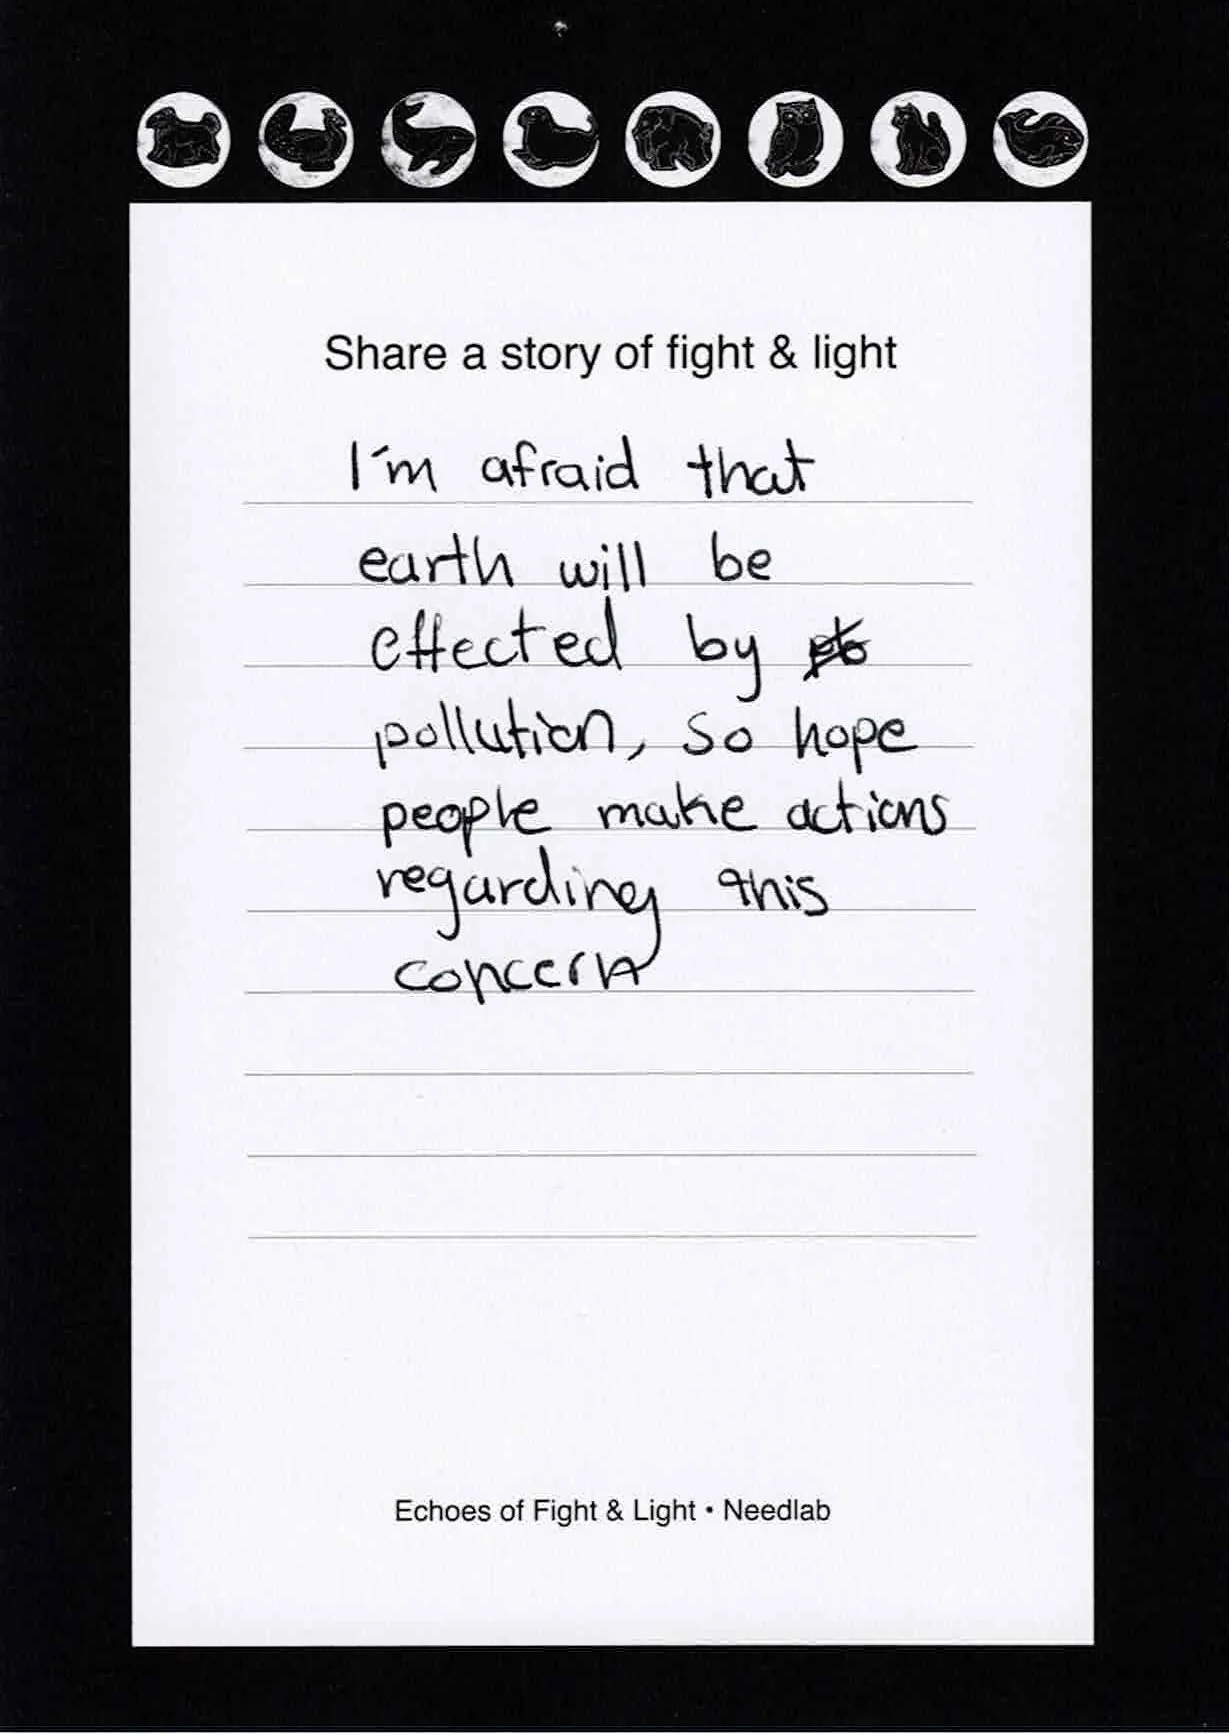 Share a story of fight & light
I'm afraid that
earth will be
effected by
pollution, so hope
people make actions
regarding this
concern
Echoes of Fight & Light • Needlab